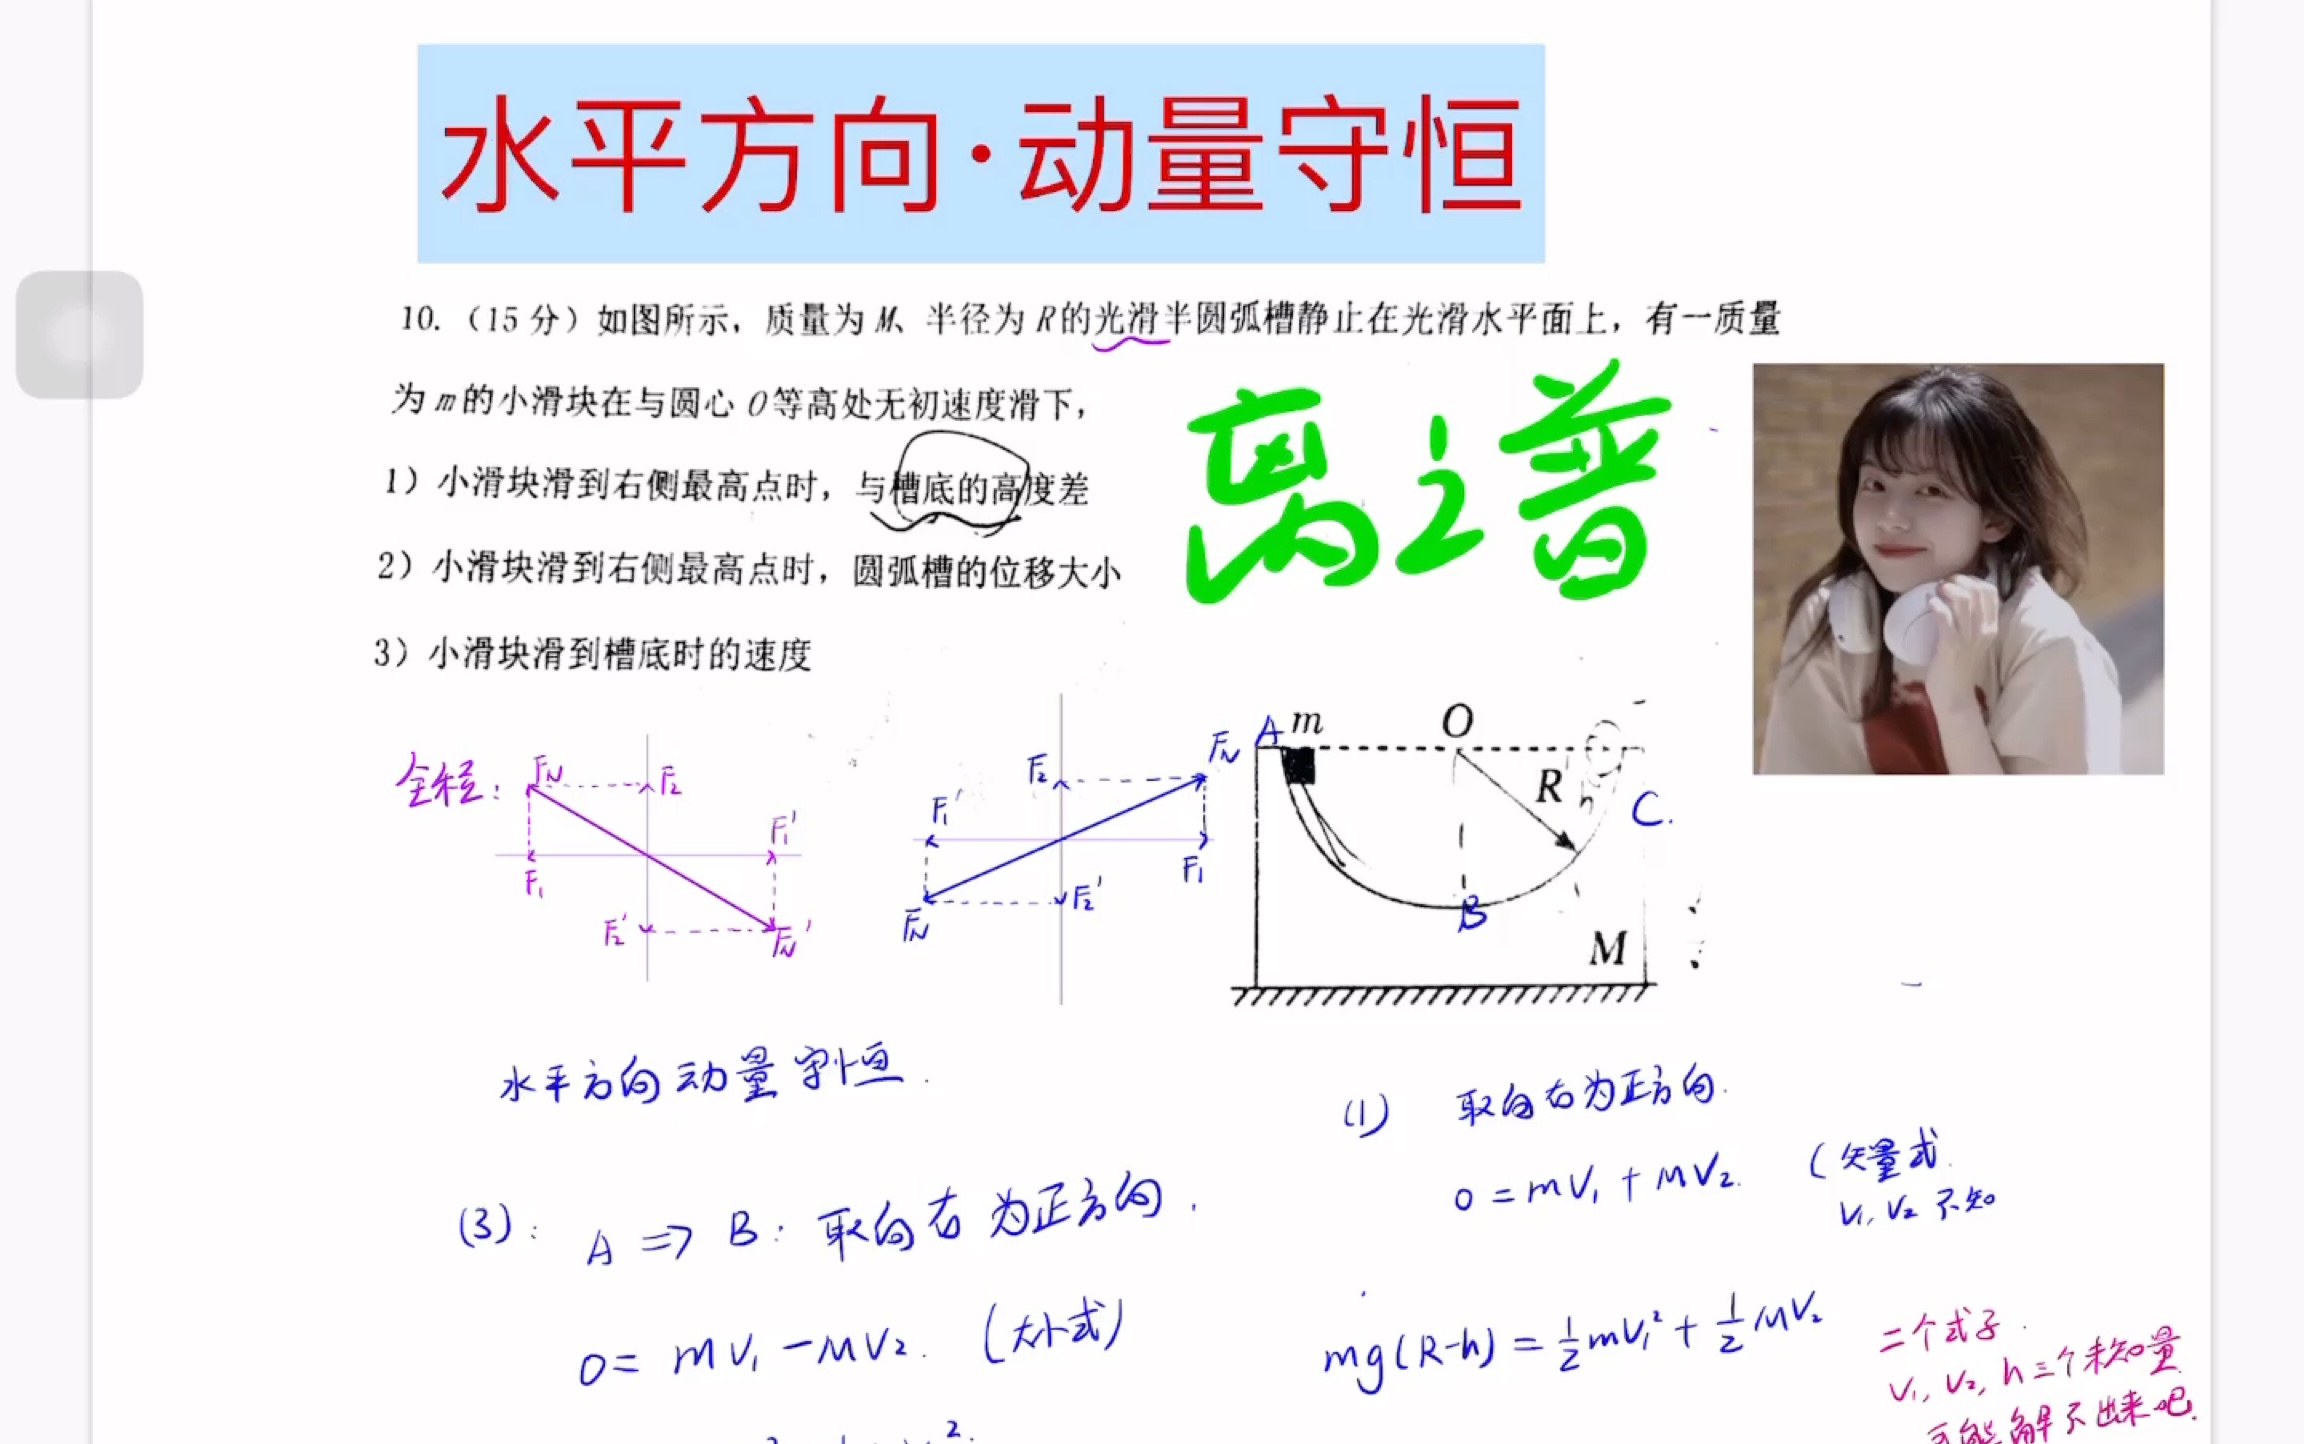 水平方向·动量守恒
10.（15分）如图所示，质量为M、半径为R的光滑半圆弧槽静止在光滑水平面上，有一质量
为m的小滑块在与圆心O等高处无初速度滑下，
1）小滑块滑到右侧最高点时，与槽底的高度差
2）小滑块滑到右侧最高点时，圆弧槽的位移大小
3）小滑块滑到槽底时的速度
离谱
全程：
FN
F2
F1
F1'
F2'
FN'
F2
FN
F1'
F1
FN
F2'
A m
O
R
h
C.
B
M
水平方向动量守恒.
(3)：A ⇒ B：取向右为正方向.
0 = mV₁ - MV₂. (大小式)
(1) 取向右为正方向.
0 = mV₁ + MV₂. (矢量式
V₁, V₂ 不知
mg(R-h) = ½mV₁² + ½MV₂
二个式子.
V₁, V₂, h 三个未知量
可能解不出来吧.